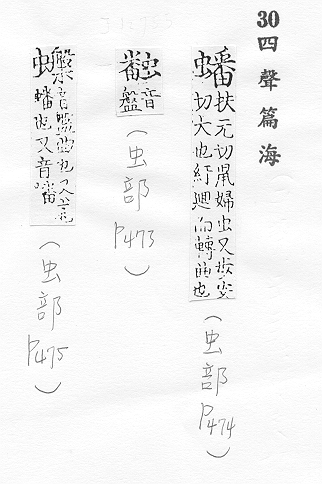 30 四聲篇海
蟠
扶元切鼠婦虫又步安
切大也紆廻而轉曲也
(虫部 P474)
音
盤
(虫部 P473)
音盤曲也又
蟠也又音
(虫部 P475)